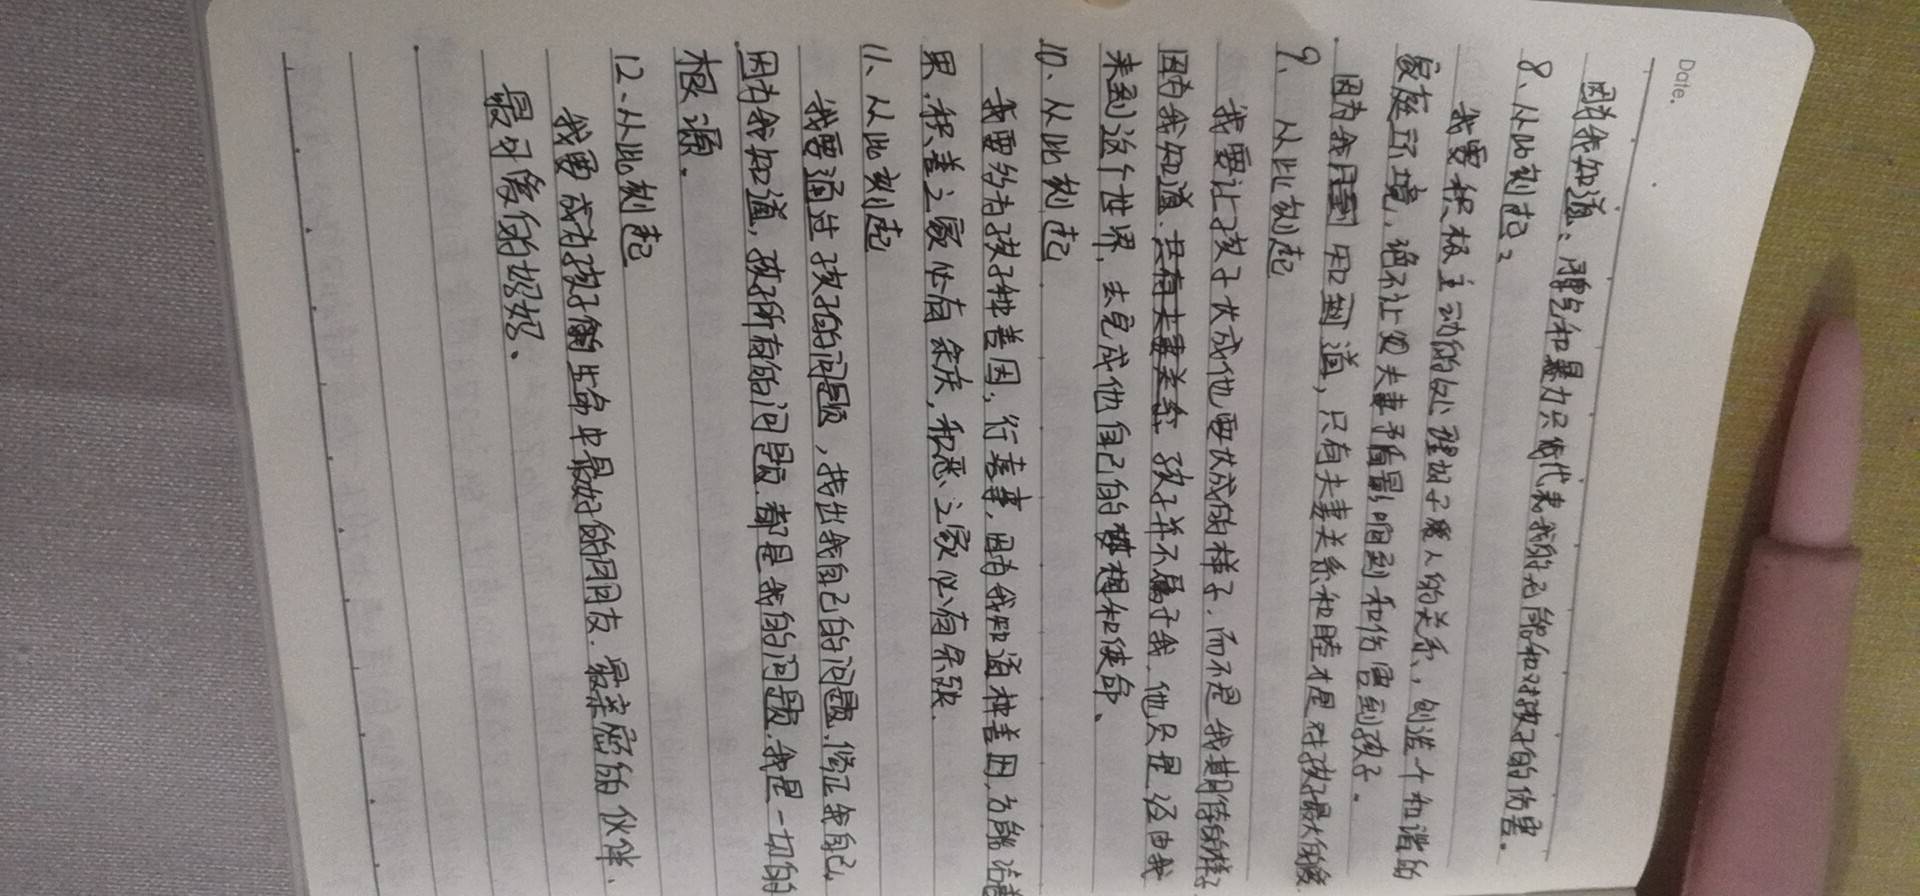 Date.
因为我知道：脾气和暴力只能代表我的无能和对孩子的伤害。
8、从此刻起，
我要积极主动的处理好与爱人的关系，创造个和谐的
家庭环境，绝不让夫妻矛盾影响到和伤害到孩子。
因为我 知到道，只有夫妻关系和睦才是对孩子最大的
9、从此刻起
我要让孩子长成他要长成的样子．而不是我期待的样子
因为我知道．只有夫妻关系 孩子并不属于我．他只是经由我
来到这个世界．去完成他自己的梦想和使命、
10、从此刻起
我要努为孩子种善因，行善事，因为我知道种善因，方能结善
果．积善之家必有余庆，积恶之家必有余殃．
11、从此刻起
我要通过孩子的问题，找出我自己的问题．修正我自己
因为我知道，孩子所有的问题．都是我的问题．我是一切的
根源．
12、从此刻起
我要成为孩子 生命中最好的朋友．最亲密的伙伴、
最可爱的妈妈、